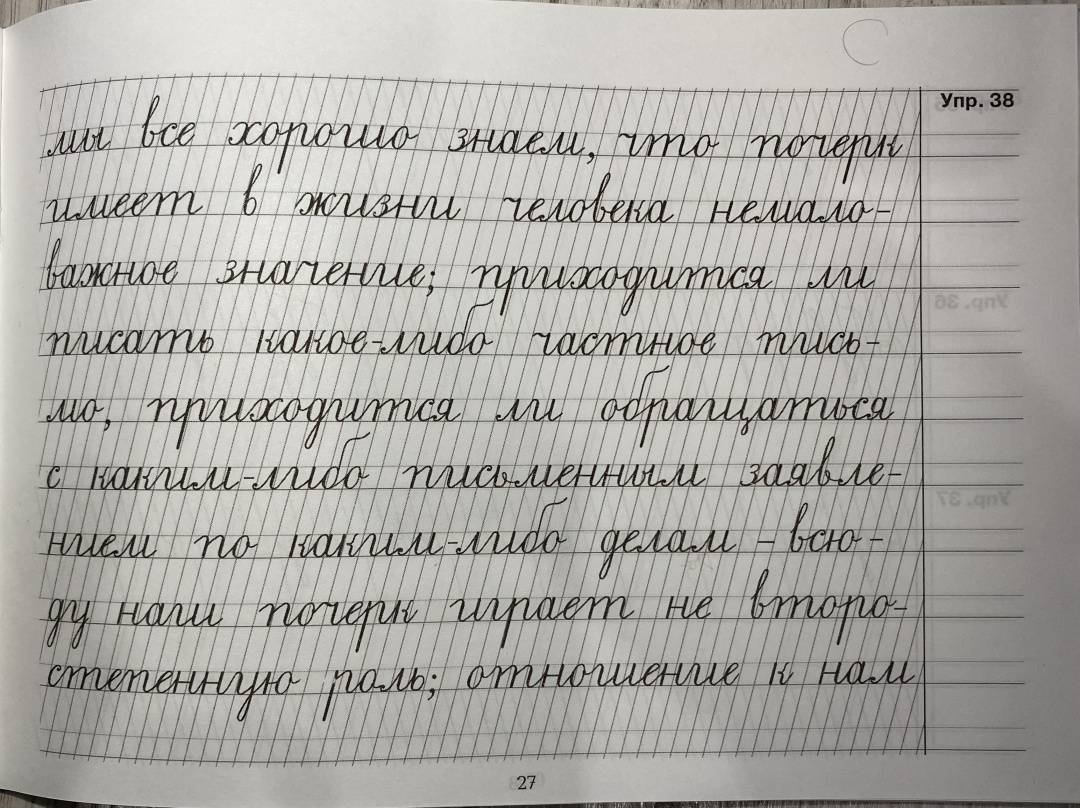 Упр. 38
мы все хорошо знаем, что почерк
имеет в жизни человека немало-
важное значение; приходится ли
писать какое-либо частное пись-
мо, приходится ли обращаться
с каким-либо письменным заявле-
нием по каким-либо делам – всю-
ду наш почерк играет не второ-
степенную роль; отношение к нам
Упр. 36
Упр. 37
27